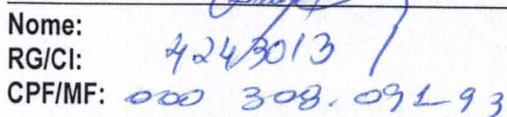 Nome:
RG/CI: 4243013
CPF/MF: 000 308.091-93